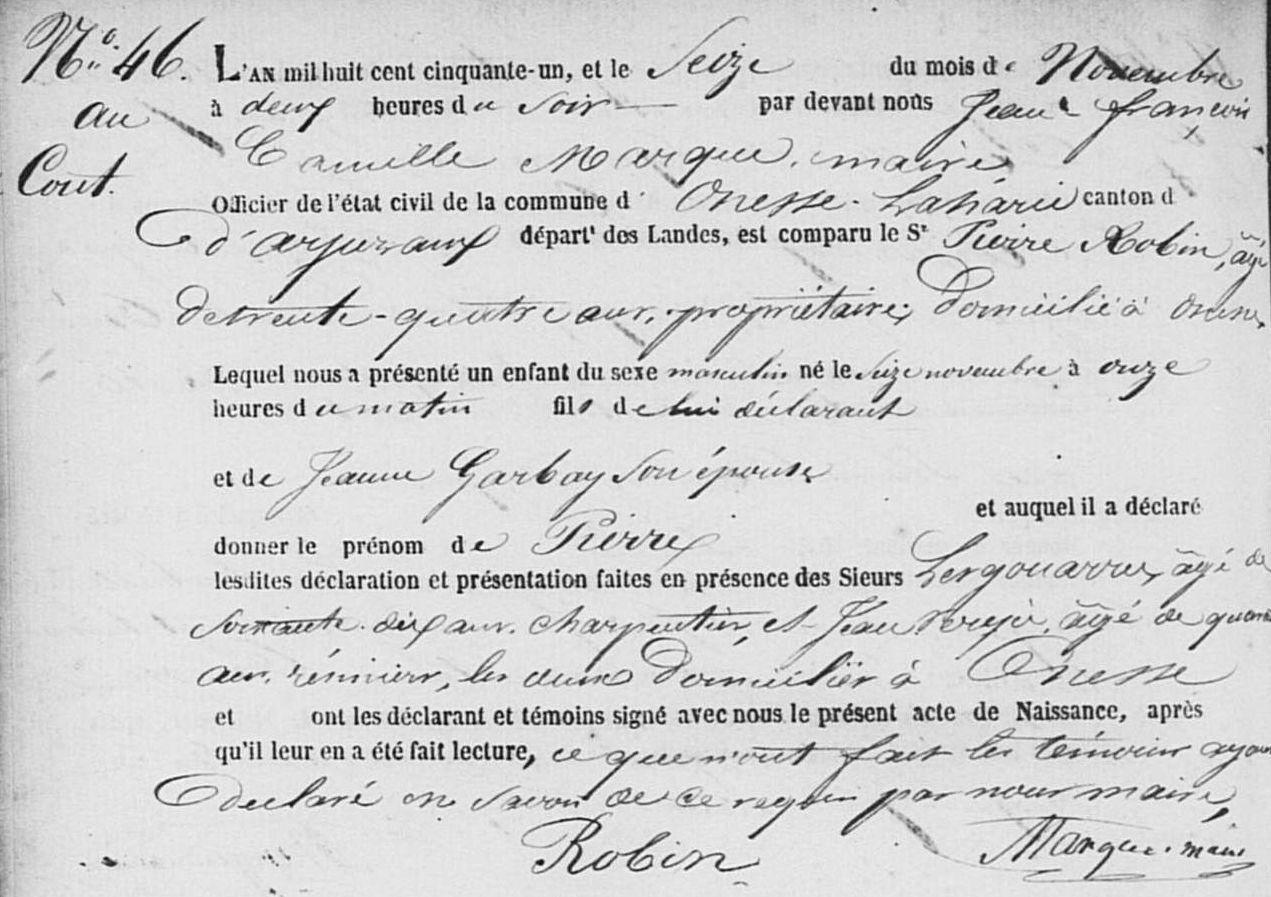 N.o 46.
au
Cout.
L'AN mil huit cent cinquante-un, et le Seize du mois de Novembre
à deux heures du Soir par devant nous Jean françois
Camille Marque, maire
Officier de l'état civil de la commune d' Onesse-Laharie canton d
d'arjuzanx départ.t des Landes, est comparu le S.r Pierre Robin, âgé
de trente-quatre ans, propriétaire, Domicilié à Onesse,
Lequel nous a présenté un enfant du sexe masculin né le Seize novembre à onze
heures du matin fils de lui déclarant
et de Jeanne Garbay son épouse
et auquel il a déclaré
donner le prénom de Pierre
lesdites déclaration et présentation faites en présence des Sieurs âgé de
Soixante-dix ans, charpentier, et Jean âgé de
ans, résinier, les deux Domiciliés à Onesse
et ont les déclarant et témoins signé avec nous le présent acte de Naissance, après
qu'il leur en a été fait lecture, ce que n'ont fait les témoins ayant
declaré ne Savoir de ce requis par nous maire,
Robin Marque, maire